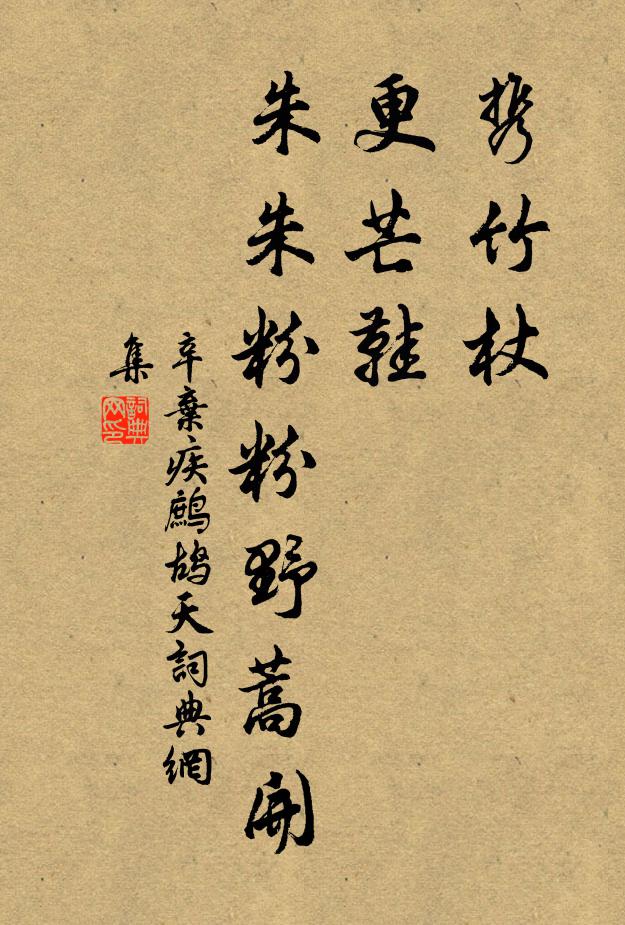 携竹杖
更芒鞋
朱朱粉粉野蒿開
辛棄疾鷓鴣天詞典網
集
詞典
网印